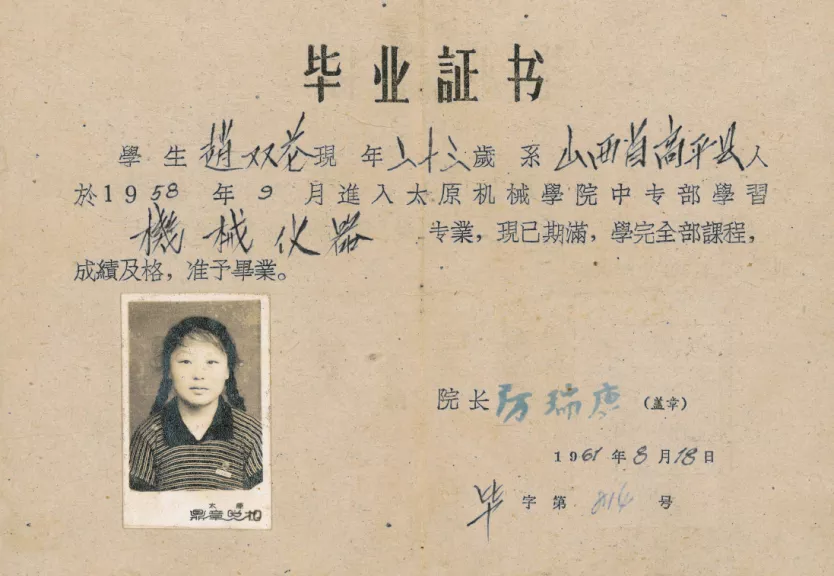 毕业証书
學生趙双花現年二十三歲系山西省高平县人
於1958年9月進入太原机械學院中专部學習
機械仪器专業，現已期滿，學完全部課程，
成績及格，准予畢業。
院长 瑞庚（蓋章）
1961年8月18日
毕字第 号
太原
鼎章照相